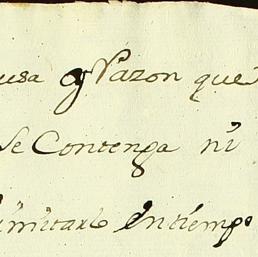 usa y Razon que
se Contenga ni
imitarlo Entiempo